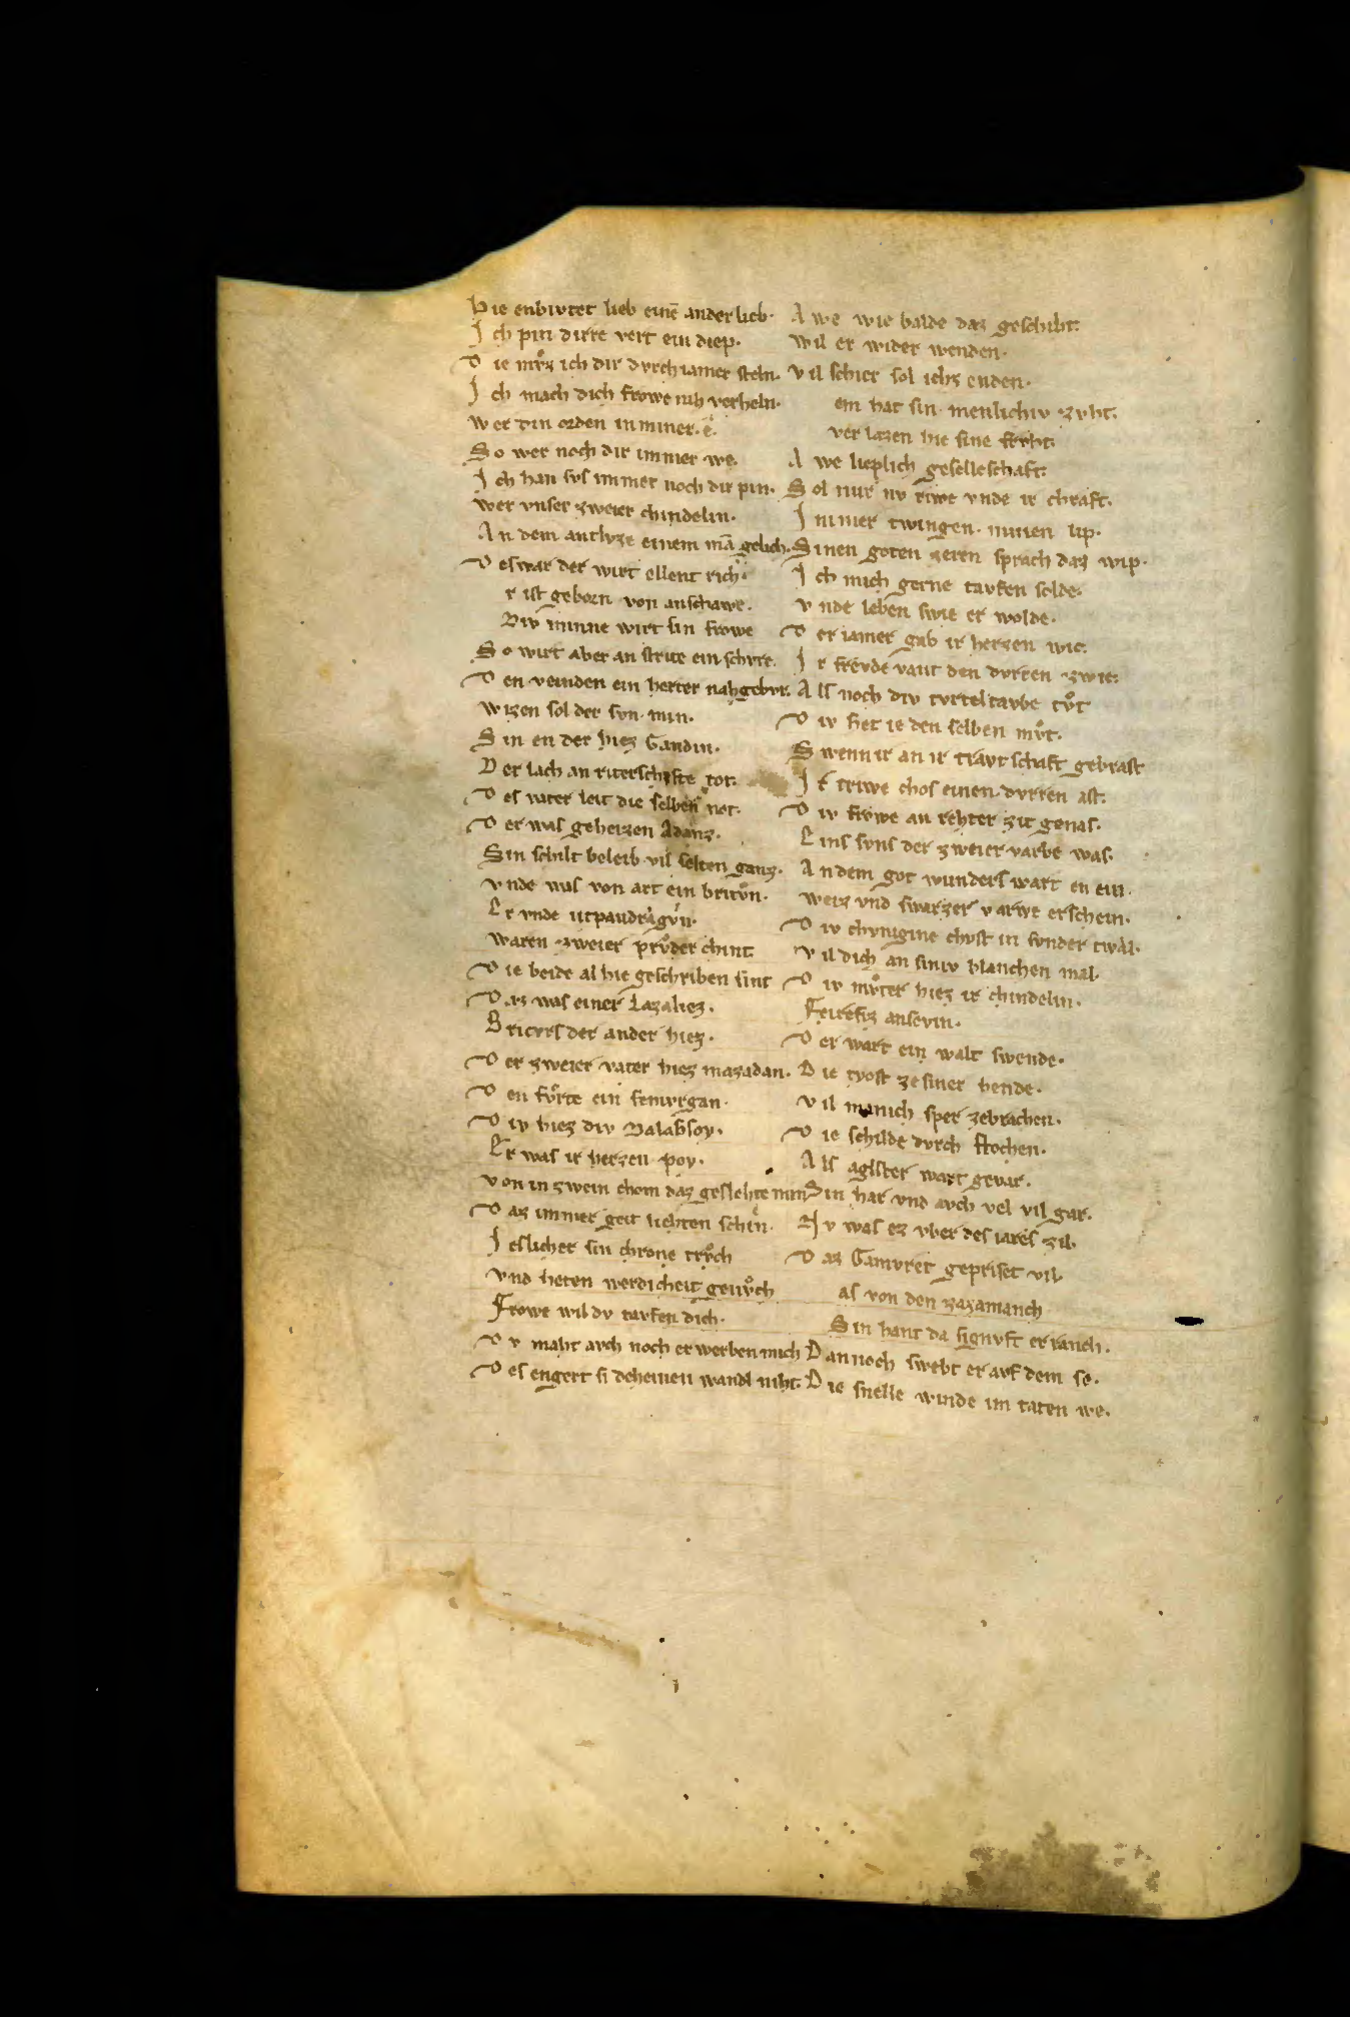 Hie enbivtet lieb einē ander lieb.
J ch pin dirre vert ein diep.
D ie mvͦz ich dir dvrch iamer steln.
J ch mach dich frowe niht verheln.
W er din orden in miner. e.
S o wer noch dir immer we.
J ch han svs immer noch dir pin.
Wer vnser zweier chindelin.
A n dem antlvze einem mā gelich.
D eswar der wirt ellent rich.
r ist geborn von anschawe.
Div minne wirt sin frowe
S o wirt aber an strite ein schvre.
D en veinden ein herter nahgebvr.
Wizen sol der svn. min.
S in en der hiez Gandin.
D er lach an riterschefte tot.
D es vater leit die selben not.
D er was geheizen Adanz.
Sin schilt beleib vil selten ganz.
V nde was von art ein britvͦn.
E r vnde utpandragvn.
Waren zweier prvͦder chint
D ie beide al hie geschriben sint
D az was einer Lazaliez.
B ricvrs der ander hiez.
D er zweier vater hiez mazadan.
D en fvͦrte ein femvrgan.
D iv hiez div Dalahsoy.
E r was ir herzen poy.
V on in zwein chom daz geslehte min
D az immer geit liehten schin.
J eslicher sin chrone trvͦch
Vnd heten werdicheit genvͦch
Frowe wil dv tavfen dich.
D v maht avch noch erwerben mich
D es engert si deheinen wandl niht.
A we wie balde daz geschiht.
Wil er wider wenden.
V il schier sol ichz enden.
em hat sin menlichiv zvht.
ver lazen hie sine frvht.
A we lieplich geselleschaft.
S ol mir nv riwe vnde ir chraft.
J mmer twingen. minen lip.
Sinen goten zeren sprach daz wip.
J ch mich gerne tavfen solde.
V nde leben swie er wolde.
D er iamer gab ir herzen wic.
J r frevde vant den dvrren zwic.
A ls noch div tvrteltavbe tvͦt
D iv het ie den selben mvͦt.
S wenn ir an ir travtschaft gebrast
J r triwe chos einen dvrren ast.
D iv frowe an rehter zit genas.
E ins svns der zweier varbe was.
A ndem got wunders wart en ein.
Weiz vnd swarzer varwe erschein.
D iv chvnigine chvst in svnder twal.
V il dich an siniv blanchen mal.
D iv mvͦter hiez ir chindelin.
Feirefiz ansevin.
D er wart ein walt swende.
D ie tyost ze siner hende.
V il manich sper zebrachen.
D ie schilde dvrch stochen.
A ls aglster wart gevar.
Sin har vnd avch vel vil gar.
N v was ez vber des iares zil.
D az Gamvret gepriset vil
as von den zazamanch
Sin hant da signvft erranch.
D annoch swebt er avf dem se.
D ie snelle winde im taten we.